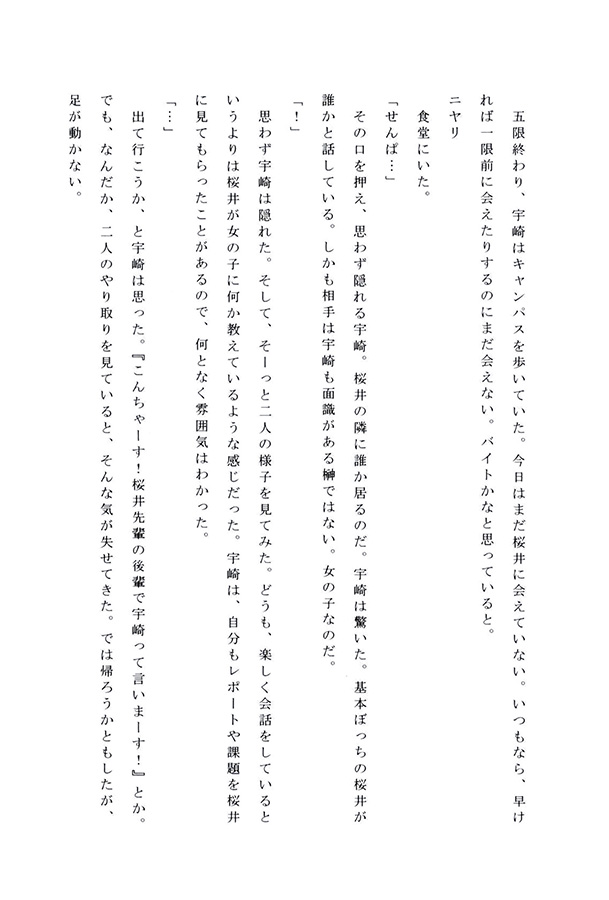 五限終わり、宇崎はキャンパスを歩いていた。今日はまだ桜井に会えていない。いつもなら、早け
れば一限前に会えたりするのにまだ会えない。バイトかなと思っていると。
ニヤリ
　食堂にいた。
「せんぱ…」
　その口を押え、思わず隠れる宇崎。桜井の隣に誰か居るのだ。宇崎は驚いた。基本ぼっちの桜井が
誰かと話している。しかも相手は宇崎も面識がある榊ではない。女の子なのだ。
「！」
　思わず宇崎は隠れた。そして、そーっと二人の様子を見てみた。どうも、楽しく会話をしていると
いうよりは桜井が女の子に何か教えているような感じだった。宇崎は、自分もレポートや課題を桜井
に見てもらったことがあるので、何となく雰囲気はわかった。
「…」
　出て行こうか、と宇崎は思った。『こんちゃーす！桜井先輩の後輩で宇崎って言いまーす！』とか。
でも、なんだか、二人のやり取りを見ていると、そんな気が失せてきた。では帰ろうかともしたが、
足が動かない。